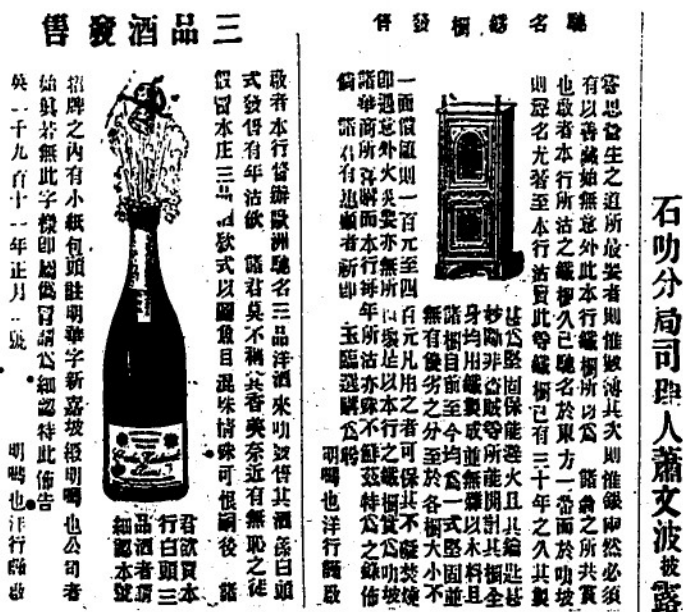 石叻分局司理人蕭文波披露
馳名鐵櫃發售
竊思營生之道所最要者則惟數簿其次則惟銀両然必須
有以善藏始無意外此本行鐵櫃所以為 諸翁之所共賞
也啟者本行所沽之鐵櫃久已馳名於東方一帶而於叻坡
則冠名尤著至本行沽賣此等鐵櫃已有三十年之久其製
甚為堅固保能避火且其鑰匙甚
妙斷非盜賊等所能開計其櫃全
身均用鐵製成並無雜以木料且
諸櫃自前至今均為一式堅固並
無有優劣之分至於各櫃大小不
一而價值則一百元至四百元凡用之者可保其不礙焚燒
即遇意外火災要亦無所損壞是以本行之鐵櫃實為叻坡
諸華商所喜購而本行每年所沽亦殊不鮮茲特為之錄佈
倘 諸君有惠顧者祈即 玉臨選購為盼
明嗎也洋行謹啟
三品酒發售
啟者本行督辦歐洲馳名三品洋酒來叻發售其酒係白頭
式發售有年沽飲 諸君莫不稱其香美奈近有無恥之徒
假冒本庄三品酒欵式以圖魚目混珠情殊可恨嗣後 諸
君欲買本
行白頭三
品酒者請
細認本號
招牌之內有小紙包頭註明華字新嘉坡明嗎也公司者
始真若無此字樣即屬偽冒請為細認特此佈告
英一千九百十一年正月一號 明嗎也洋行謹啟